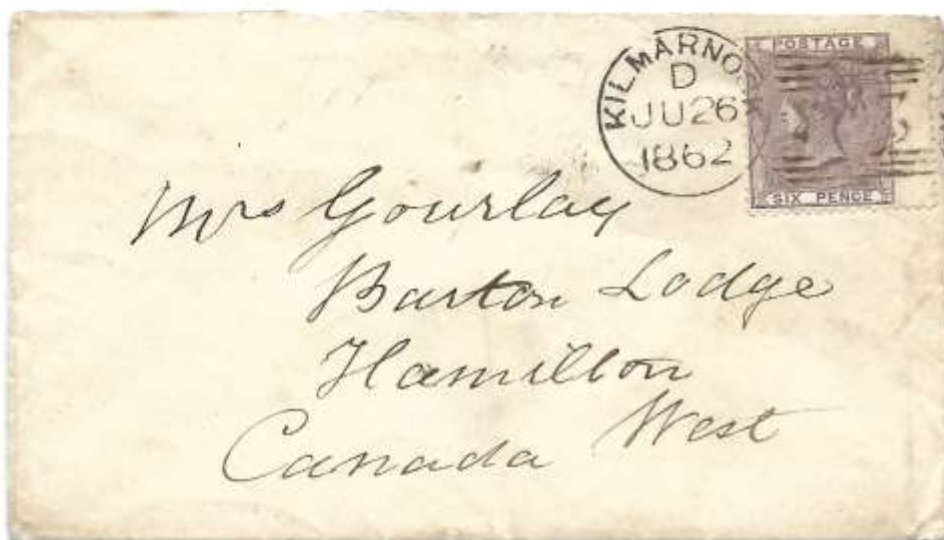 KILMARNO
D
JU 26
1862
POSTAGE
SIX PENCE
Mrs Gourlay
Barton Lodge
Hamilton
Canada West